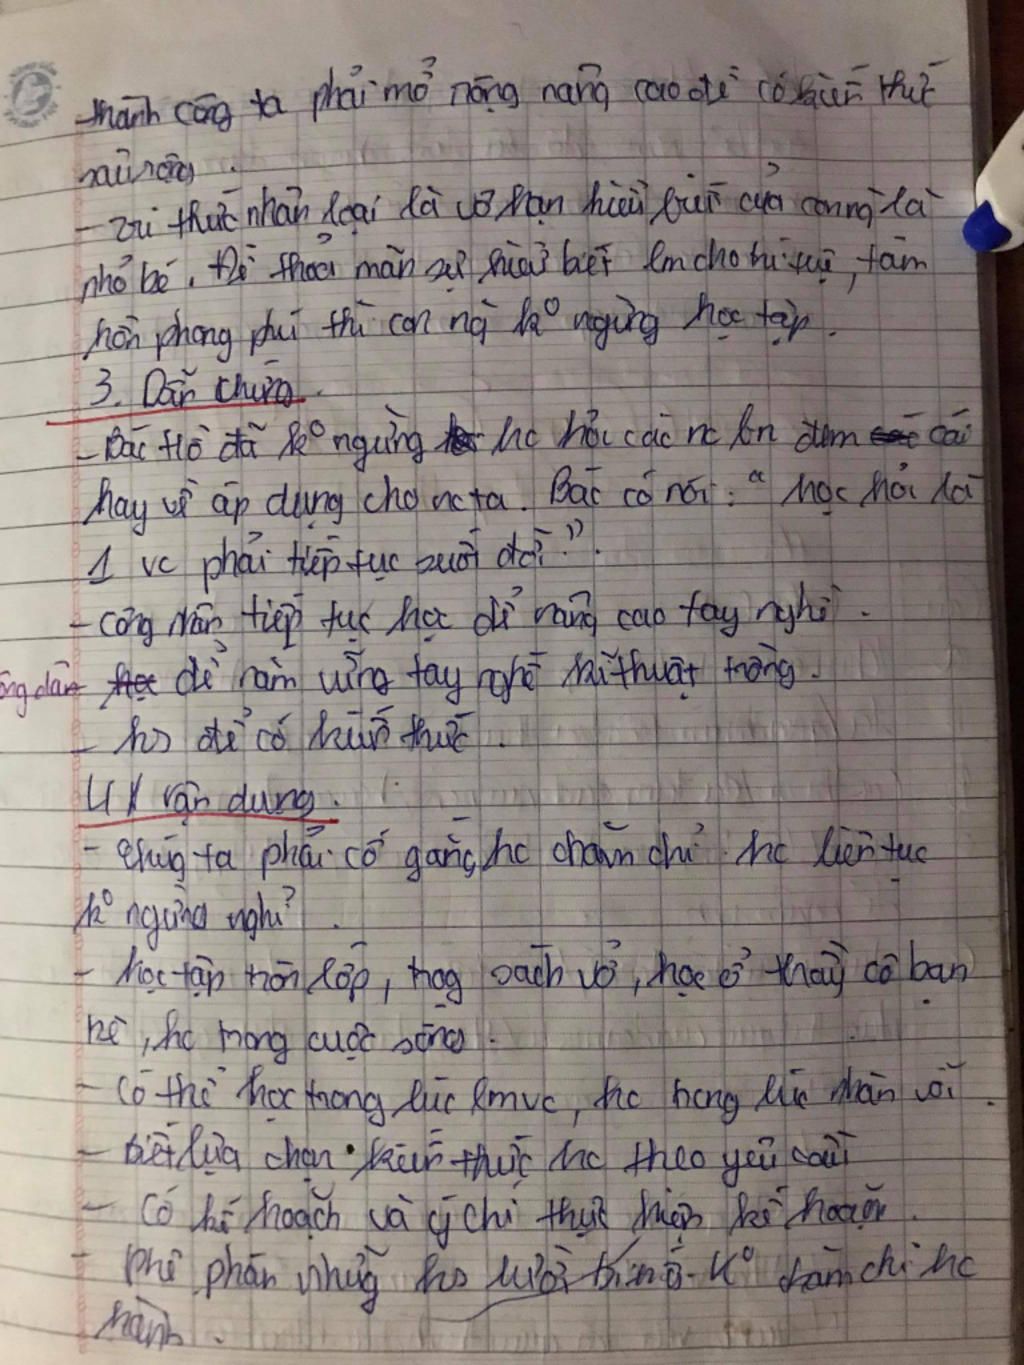 thành công ta phải mở rộng nâng cao để có kiến thức
sâu rộng.
- Tri thức nhân loại là vô hạn hiểu biết của con ng là
nhỏ bé. Để thỏa mãn sự hiểu biết lm cho trí tuệ, tâm
hồn phong phú thì con ng kº ngừng học tập.
3. Dẫn chứng.
- Bác Hồ đã kº ngừng hc hỏi các nc lớn đem cái
hay về áp dụng cho nc ta. Bác có nói: "học hỏi là
1 vc phải tiếp tục suốt đời".
- công nhân tiếp tục học để nâng cao tay nghề.
ông dân để nắm vững tay nghề kĩ thuật trồng.
- hs để có kiến thức.
4/ vận dụng.
- chúng ta phải cố gắng, hc chăm chỉ hc liên tục
kº ngừng nghỉ.
- học tập trên lớp, trog sách vở, học ở thầy cô bạn
bè, hc trong cuộc sống.
- Có thể học trong lúc lm vc, hc trong lúc nhàn rỗi.
- biết lựa chọn kiến thức hc theo yêu cầu
- Có kế hoạch và ý chí thực hiện kế hoạch.
- phê phán những hs lười kº chăm chỉ hc
hành.